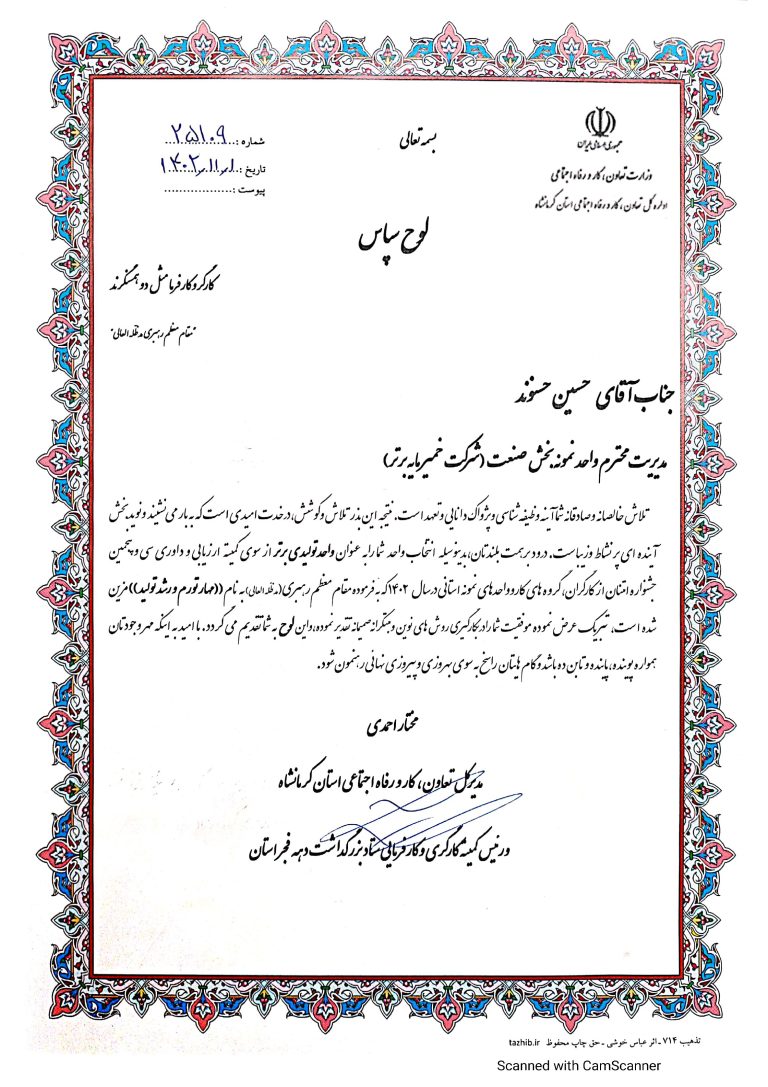 جمهوری اسلامی ایران
وزارت تعاون، کار و رفاه اجتماعی
اداره کل تعاون، کار و رفاه اجتماعی استان کرمانشاه
بسمه تعالی
شماره :..۲۵۱۰۹...
تاریخ :..۱۴۰۲,۱۱,۱۰
پیوست :..................
لوح سپاس
کارگر و کارفرما مثل دو همسنگرند
"مقام معظم رهبری مدظله العالی"
جناب آقای حسین حسنوند
مدیریت محترم واحد نمونه بخش صنعت (شرکت خمیرمایه برتر)
تلاش خالصانه و صادقانه شما آینه وظیفه شناسی و پژواک دانایی و تعهد است. نتیجه این بذر تلاش و کوشش، درخت امیدی است که به بار می نشیند و نوید بخش
آینده ای پر نشاط و زیباست. درود بر همت بلندتان، بدینوسیله انتخاب واحد شما را به عنوان واحد تولیدی برتر از سوی کمیته ارزیابی و داوری سی و پنجمین
جشنواره امتنان از کارگران، گروه های کار و واحدهای نمونه استانی در سال ۱۴۰۲ که به فرموده مقام معظم رهبری (مدظله العالی) به نام ((مهار تورم و رشد تولید)) مزین
شده است، تبریک عرض نموده موفقیت شما را در بکارگیری روش های نوین و مبتکرانه صمیمانه تقدیر نموده، و این لوح به شما تقدیم می گردد. با امید به اینکه مهر وجودتان
همواره پوینده، پاینده و تابنده باشد و گام هایتان راسخ به سوی بهروزی و پیروزی نهائی رهنمون شود.
مختار احمدی
مدیرکل تعاون، کار و رفاه اجتماعی استان کرمانشاه
و رئیس کمیته کارگری و کارفرمایی ستاد بزرگداشت دهه فجر استان
تذهیب ۷۱۴ ـ اثر عباس خوشی ـ حق چاپ محفوظ tazhib.ir
Scanned with CamScanner